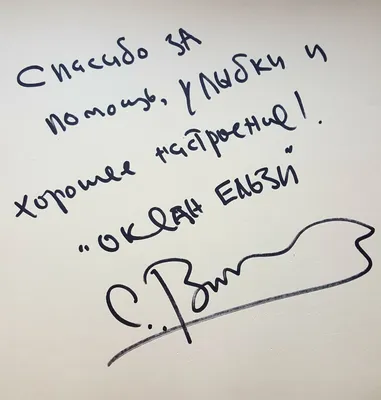 Спасибо за
помощь, улыбки и
хорошее настроение!
"Океан Ельзи"